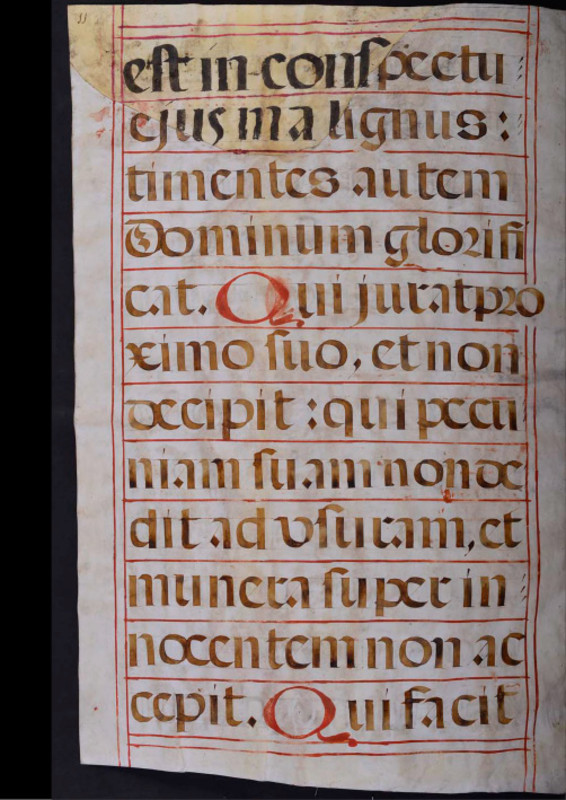 est in conspectu
ejus malignus:
timentes autem
Dominum glorifi
cat. Qui jurat pro
ximo suo, et non
decipit: qui pecu
niam suam non de
dit ad vsuram, et
munera super in
nocentem non ac
cepit. Qui facit